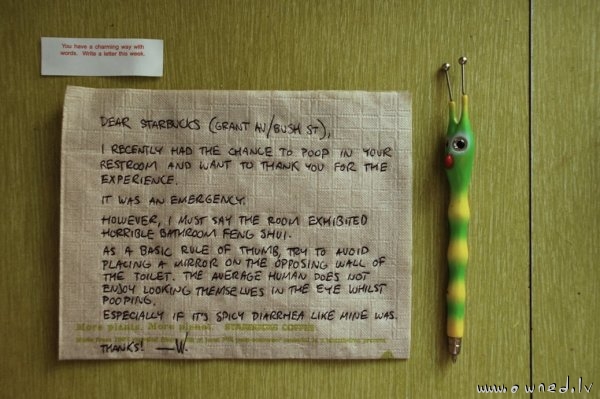 You have a charming way with
words. Write a letter this week.
DEAR STARBUCKS (GRANT AV/BUSH ST),
I RECENTLY HAD THE CHANCE TO POOP IN YOUR
RESTROOM AND WANT TO THANK YOU FOR THE
EXPERIENCE.
IT WAS AN EMERGENCY.
HOWEVER, I MUST SAY THE ROOM EXHIBITED
HORRIBLE BATHROOM FENG SHUI.
AS A BASIC RULE OF THUMB, TRY TO AVOID
PLACING A MIRROR ON THE OPPOSING WALL OF
THE TOILET. THE AVERAGE HUMAN DOES NOT
ENJOY LOOKING THEMSELVES IN THE EYE WHILST
POOPING.
ESPECIALLY IF IT'S SPICY DIARRHEA LIKE MINE WAS.
More plants. More planet. STARBUCKS COFFEE
THANKS! —W.
www.owned.lv